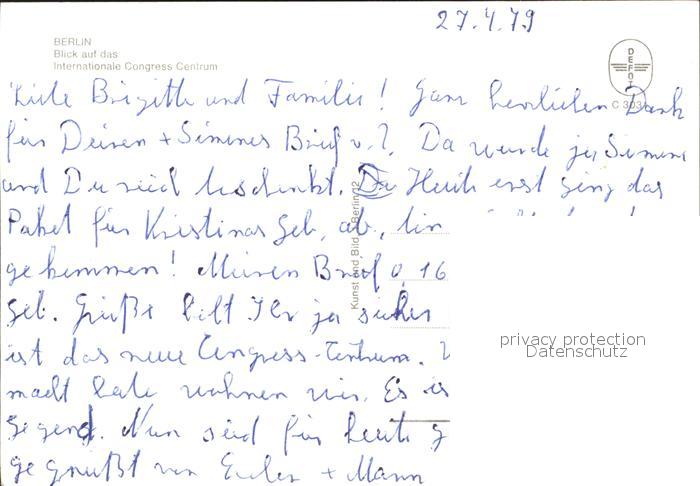 27.4.79
BERLIN
Blick auf das
Internationale Congress Centrum
DEFOT
C 303
Liebe Brigitte und Familie! Ganz herzlichen Dank
für Deinen + Simones Brief v. 2. Da wurde ja Simone
und Du reich beschenkt. Heute erst ging das
Paket für Kristinas Geb. ab, bin
gekommen! Meinen Brief v. 16
Geb. Grüße habt Ihr ja sicher
ist das neue Congress-Centrum.
macht habe wohnen wir. Es is
Gegend. Nun seid für heute g
gegrüßt von + Mann
Kunst und Bild Berlin 12
privacy protection
Datenschutz